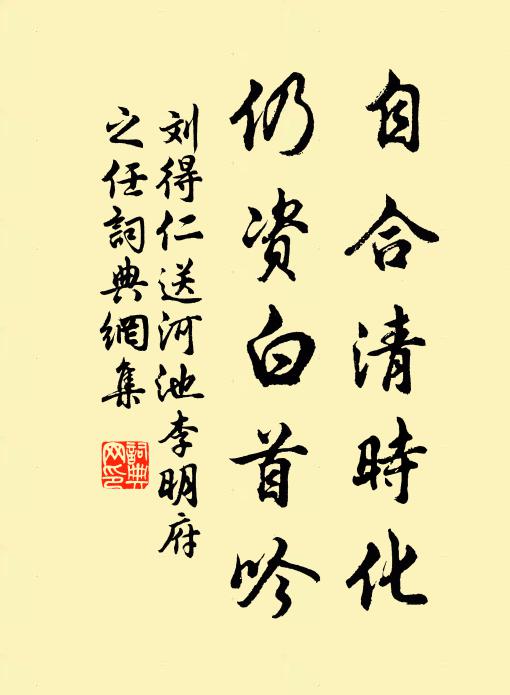 自合清時化
仍资白首吟
刘得仁送河池李明府
之任詞典網集
詞典
网印